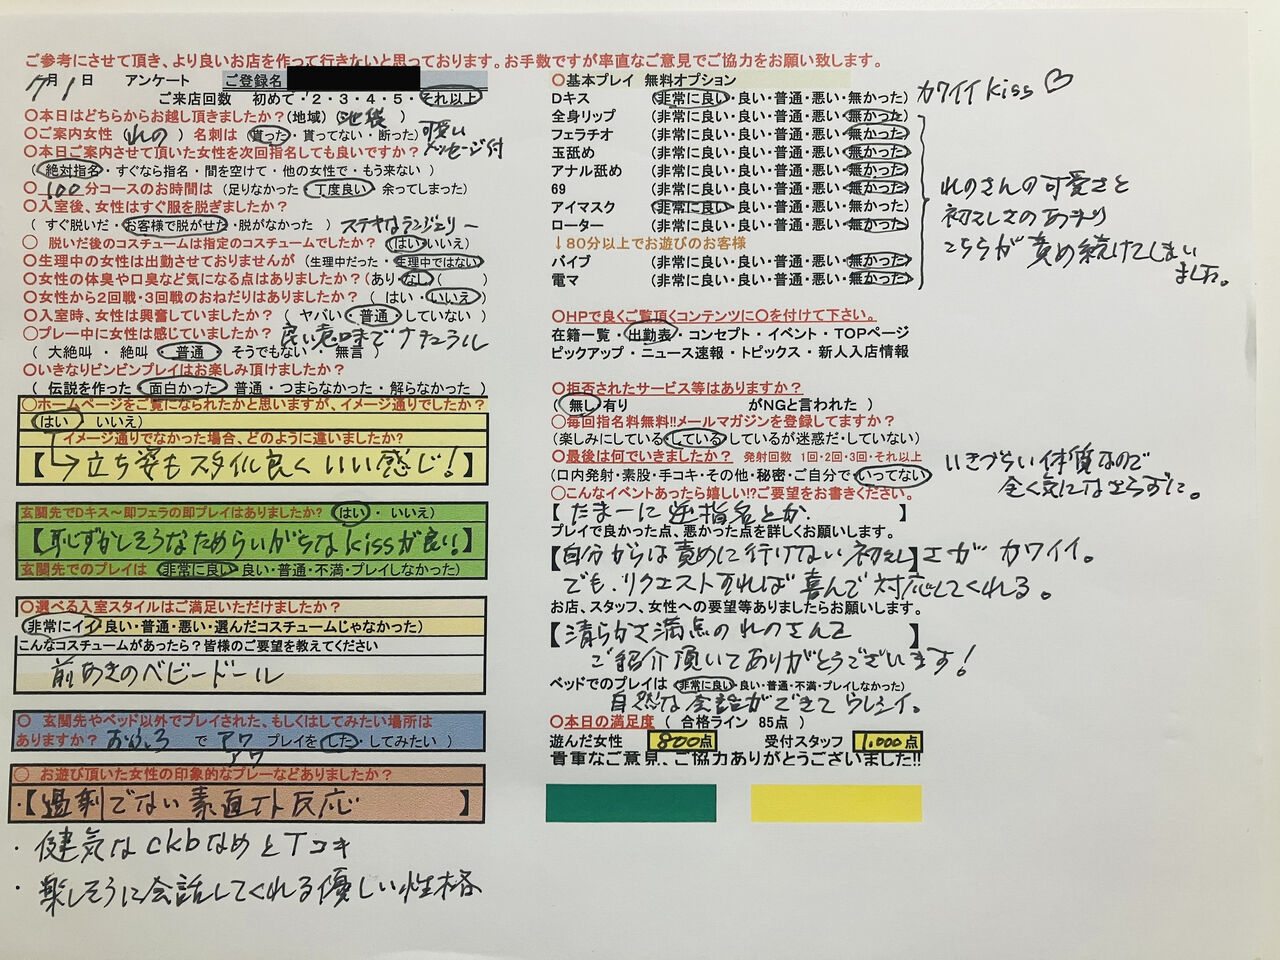 ご参考にさせて頂き、より良いお店を作って行きたいと思っております。お手数ですが率直なご意見でご協力をお願い致します。
7月1日 アンケート ご登録名
ご来店回数 初めて・2・3・4・5・それ以上
〇本日はどちらからお越し頂きましたか?(地域) 池袋
〇ご案内女性(れの)名刺は(貰った・貰ってない・断った)可愛いメッセージ付
〇本日ご案内させて頂いた女性を次回指名しても良いですか?
(絶対指名・すぐなら指名・間を空けて・他の女性で・もう来ない)
〇100分コースのお時間は(足りなかった・丁度良い・余ってしまった)
〇入室後、女性はすぐ服を脱ぎましたか?
(すぐ脱いだ・お客様で脱がせた・脱がなかった)ステキなランジェリー
〇 脱いだ後のコスチュームは指定のコスチュームでしたか?(はい・いいえ)
〇生理中の女性は出勤させておりませんが(生理中だった・生理中ではない)
〇女性の体臭や口臭など気になる点はありましたか?(あり・なし( )
〇女性から2回戦・3回戦のおねだりはありましたか?(はい・いいえ)
〇入室時、女性は興奮していましたか?(ヤバい・普通・していない)
〇プレー中に女性は感じていましたか? 良い意味でナチュラル
(大絶叫・絶叫・普通・そうでもない・無言)
〇いきなりビンビンプレイはお楽しみ頂けましたか?
(伝説を作った・面白かった・普通・つまらなかった・解らなかった)
〇ホームページをご覧になられたかと思いますが、イメージ通りでしたか?
(はい・いいえ)
イメージ通りでなかった場合、どのように違いましたか?
【→立ち姿もスタイル良くいい感じ!】
玄関先でDキス~即フェラの即プレイはありましたか?(はい・いいえ)
【恥ずかしそうなためらいがちなkissが良い!】
玄関先でのプレイは(非常に良い・良い・普通・不満・プレイしなかった)
〇選べる入室スタイルはご満足いただけましたか?
(非常にイイ・良い・普通・悪い・選んだコスチュームじゃなかった)
こんなコスチュームがあったら?皆様のご要望を教えてください
前あきのベビードール
〇 玄関先やベッド以外でプレイされた、もしくはしてみたい場所は
ありますか? おふろ で アワ プレイを(した・してみたい)
アワ
〇 お遊び頂いた女性の印象的なプレーなどありましたか?
・【過剰でない素直な反応】
・健気なckbなめとTコキ
・楽しそうに会話してくれる優しい性格
〇基本プレイ 無料オプション
Dキス (非常に良い・良い・普通・悪い・無かった) カワイイkiss♡
全身リップ (非常に良い・良い・普通・悪い・無かった)
フェラチオ (非常に良い・良い・普通・悪い・無かった)
玉舐め (非常に良い・良い・普通・悪い・無かった)
アナル舐め (非常に良い・良い・普通・悪い・無かった)
69 (非常に良い・良い・普通・悪い・無かった)
アイマスク (非常に良い・良い・普通・悪い・無かった)
ローター (非常に良い・良い・普通・悪い・無かった)
↓80分以上でお遊びのお客様
バイブ (非常に良い・良い・普通・悪い・無かった)
電マ (非常に良い・良い・普通・悪い・無かった)
れのさんの可愛さと
初々しさのあまり
こちらが責め続けてしまい
ました。
〇HPで良くご覧頂くコンテンツに〇を付けて下さい。
在籍一覧・出勤表・コンセプト・イベント・TOPページ
ピックアップ・ニュース速報・トピックス・新人入店情報
〇拒否されたサービス等はありますか?
(無し・有り がNGと言われた)
〇毎回指名料無料!!メールマガジンを登録してますか?
(楽しみにしている・している・しているが迷惑だ・していない)
〇最後は何でいきましたか? 発射回数 1回・2回・3回・それ以上
(口内発射・素股・手コキ・その他・秘密・ご自分で・いってない)
いきづらい体質なので
全く気になさらずに。
〇こんなイベントあったら嬉しい!?ご要望をお書きください。
【たまーに逆指名とか.】
プレイで良かった点、悪かった点を詳しくお願いします。
【自分からは責めに行けない初々し】さがカワイイ。
でも、リクエストすれば喜んで対応してくれる。
お店、スタッフ、女性への要望等ありましたらお願いします。
【清らかさ満点のれのさんを】
ご紹介頂いてありがとうございます!
ベッドでのプレイは(非常に良い・良い・普通・不満・プレイしなかった)
自然な会話ができてウレシイ。
〇本日の満足度(合格ライン 85点)
遊んだ女性 800点 受付スタッフ 1,000点
貴重なご意見、ご協力ありがとうございました!!